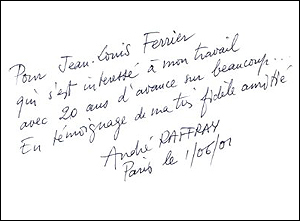 Pour Jean-Louis Ferrier
qui s'est intéressé à mon travail
avec 20 ans d'avance sur beaucoup...
En témoignage de ma très fidèle amitié
André RAFFRAY
Paris le 1/06/01